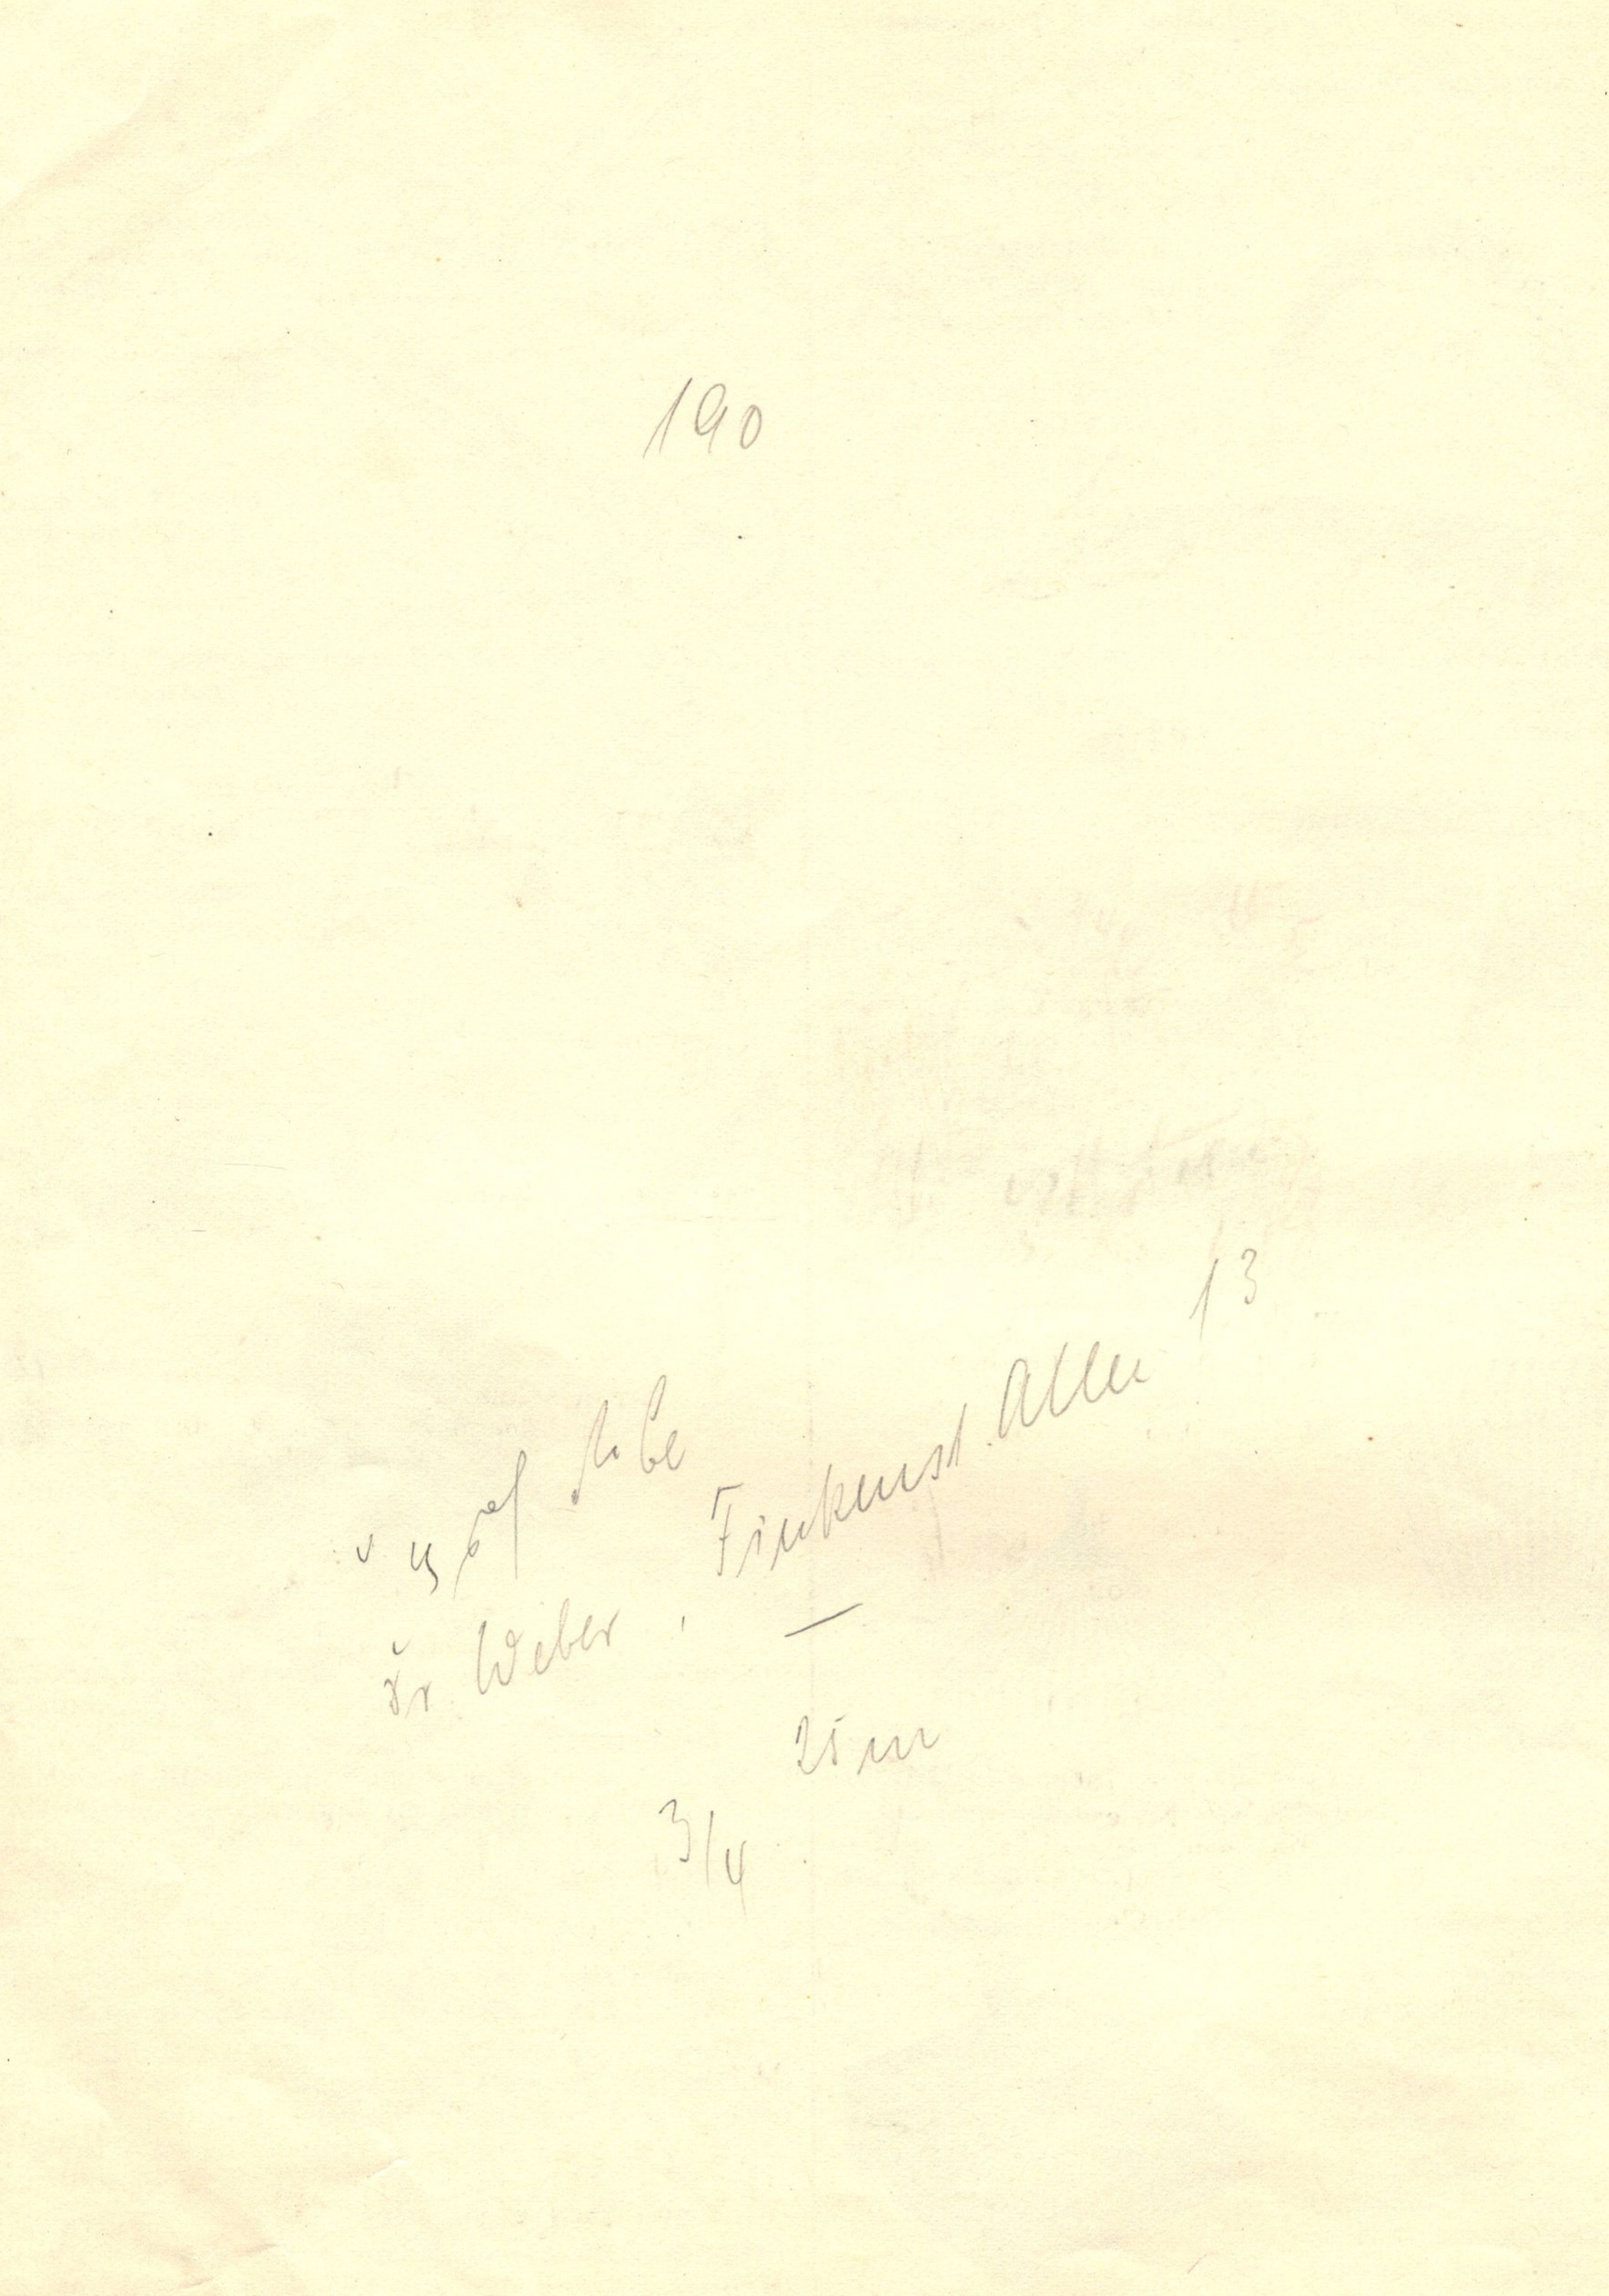 190
Dr Weber, Finkenst. Allee 13
25 m
3/4